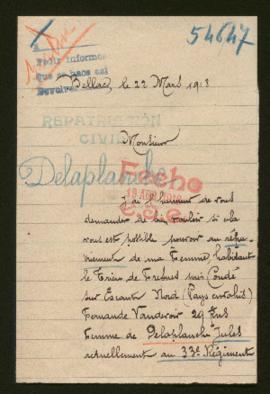 54647
Pedir informes
que se hace así
Devolver
Bellac, le 22 Mars 1918
REPATRIACIÓN
CIVIL
Monsieur
Delaplanche
Fecho
J'ai l'honneur de vous
demander de bien vouloir si cela
vous est possible pourvoir au
de ma Femme habitant
le Trieu de Fresnes près Condé
sur Escaut Nord (Pays envahis)
Fernande 29 Ans
Femme de Delaplanche Jules
actuellement au 33e Régiment